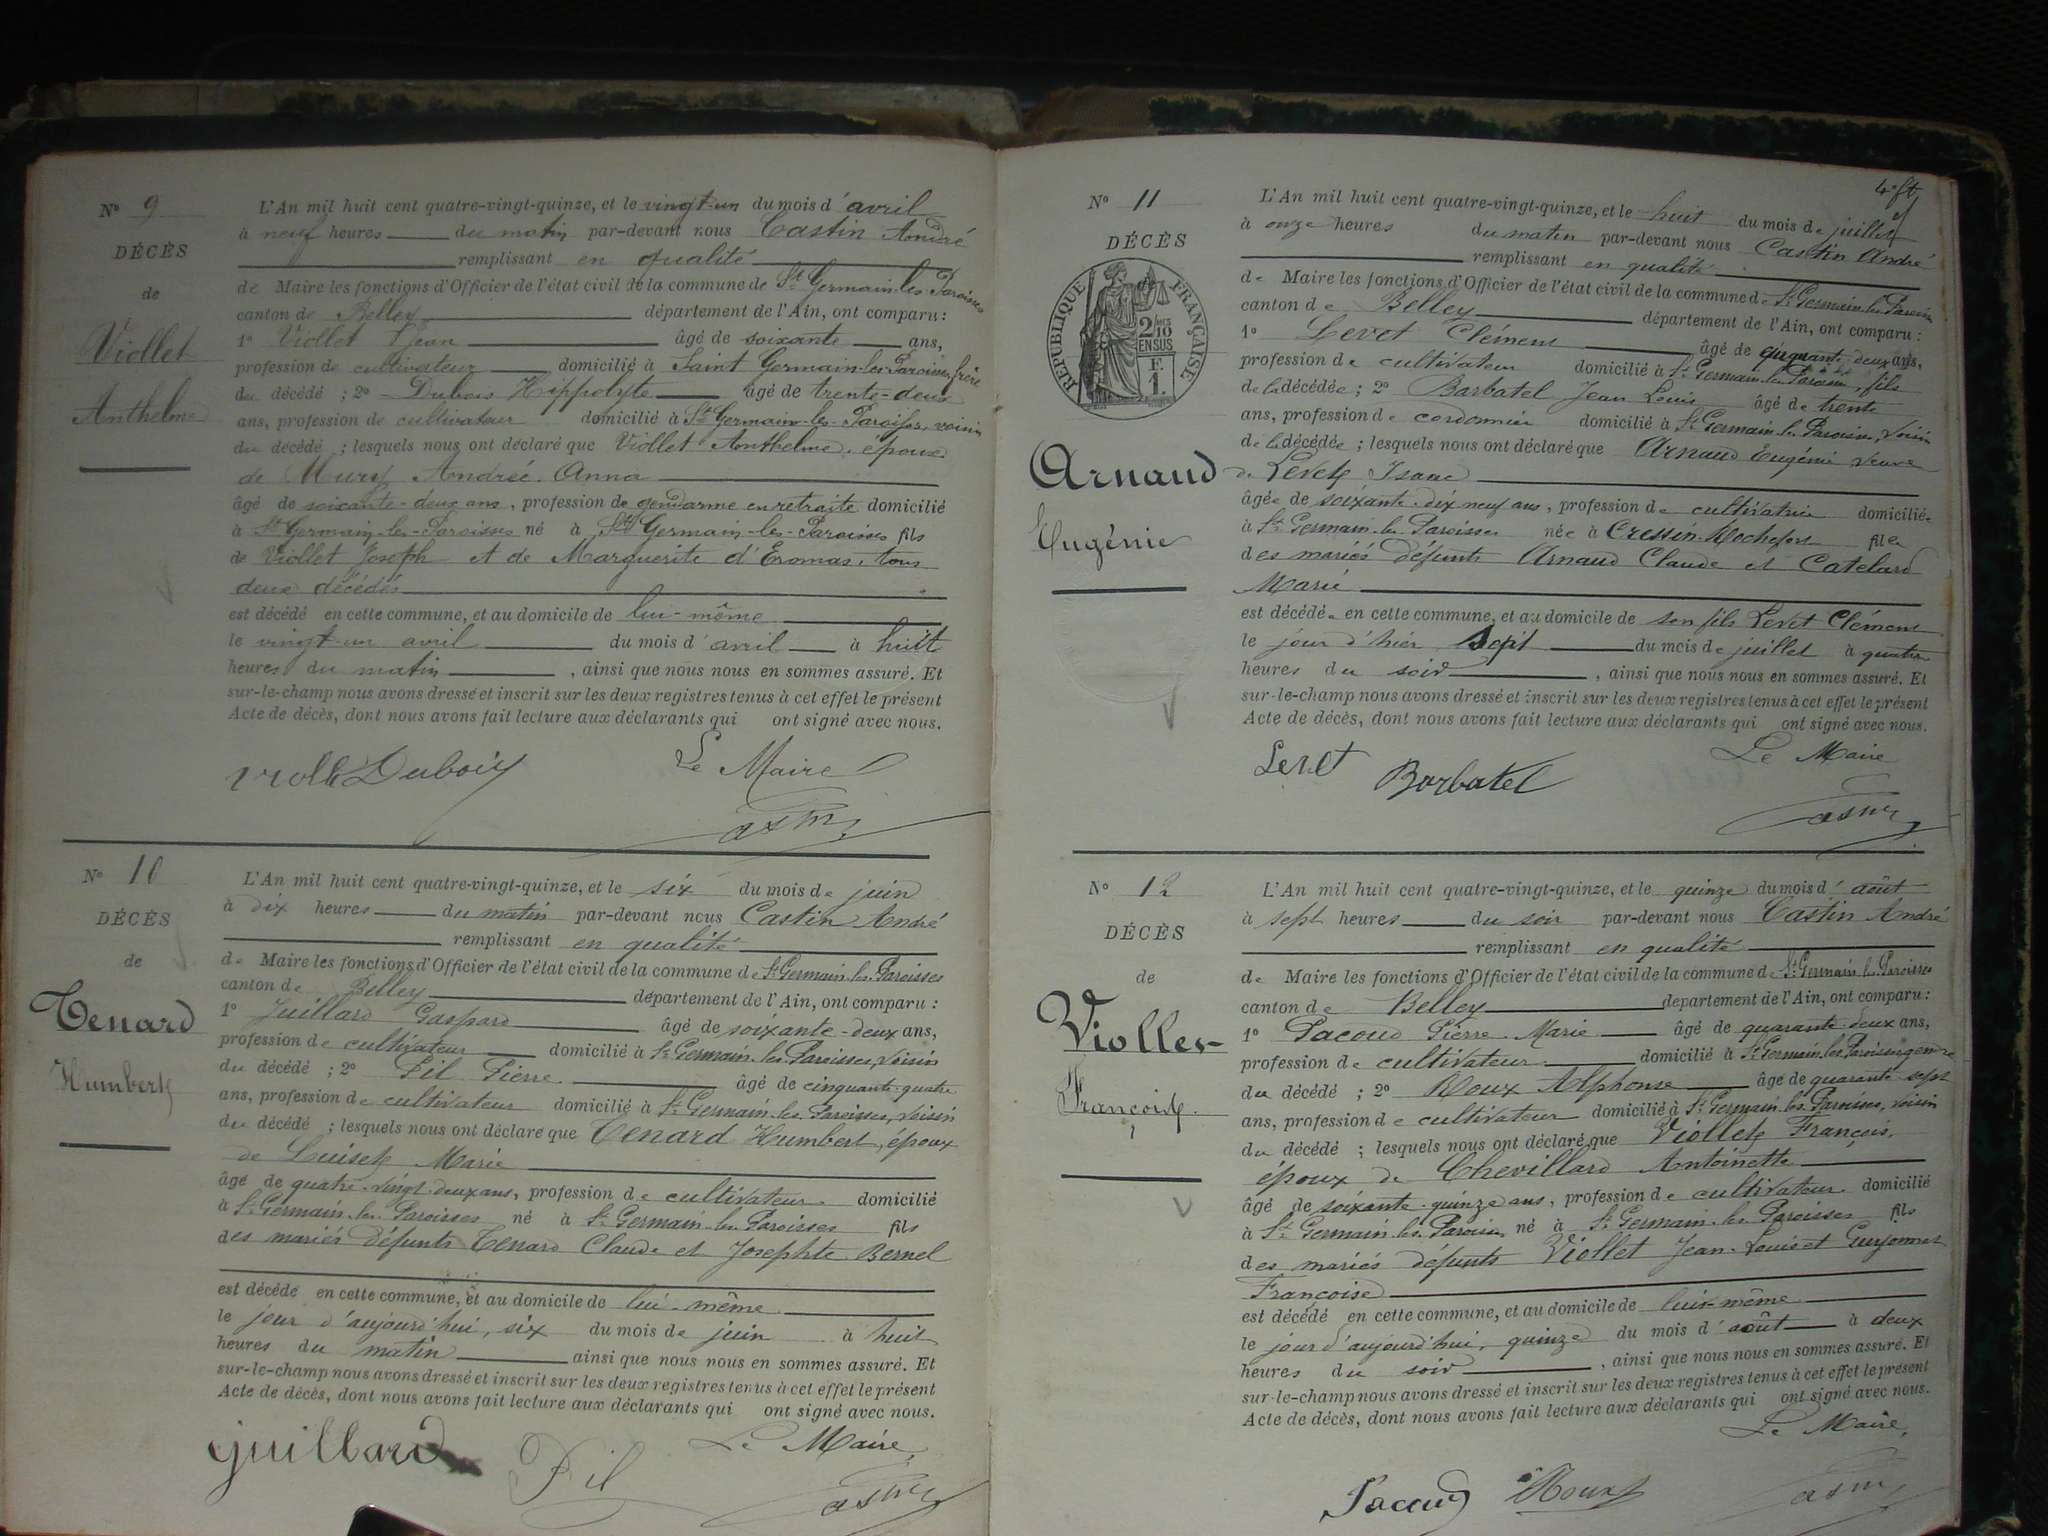 N° 9
DÉCÈS
de
Viollet
Anthelme
L'An mil huit cent quatre-vingt-quinze, et le vingt-un du mois d'avril
à neuf heures du matin par-devant nous Castin André
remplissant en qualité
de Maire les fonctions d'Officier de l'état civil de la commune de St Germain-les-Paroisses
canton de Belley département de l'Ain, ont comparu :
1° Viollet Jean âgé de soixante ans,
profession de cultivateur domicilié à Saint Germain-les-Paroisses, frère
du décédé ; 2° Dubois Hippolyte âgé de trente-deux
ans, profession de cultivateur domicilié à St Germain-les-Paroisses, voisin
du décédé ; lesquels nous ont déclaré que Viollet Anthelme, époux
de Mury Andrée Anna
âgé de soixante-deux ans, profession de gendarme en retraite domicilié
à St Germain-les-Paroisses né à St Germain-les-Paroisses fils
de Viollet Joseph et de Marguerite d'Eromas, tous
deux décédés
est décédé en cette commune, et au domicile de lui-même
le vingt-un avril du mois d'avril à huit
heures du matin, ainsi que nous nous en sommes assuré. Et
sur-le-champ nous avons dressé et inscrit sur les deux registres tenus à cet effet le présent
Acte de décès, dont nous avons fait lecture aux déclarants qui ont signé avec nous.
Le Maire
Viollet Dubois
Castin
N° 10
DÉCÈS
de
Tenard
Humbert
L'An mil huit cent quatre-vingt-quinze, et le six du mois de juin
à dix heures du matin par-devant nous Castin André
remplissant en qualité
de Maire les fonctions d'Officier de l'état civil de la commune de St Germain-les-Paroisses
canton de Belley département de l'Ain, ont comparu :
1° Juillard Gaspard âgé de soixante-deux ans,
profession de cultivateur domicilié à St Germain-les-Paroisses, voisin
du décédé ; 2° Pil Pierre âgé de cinquante-quatre
ans, profession de cultivateur domicilié à St Germain-les-Paroisses, voisin
du décédé ; lesquels nous ont déclaré que Tenard Humbert, époux
de Luiset Marie
âgé de quatre-vingt-deux ans, profession de cultivateur domicilié
à St Germain-les-Paroisses né à St Germain-les-Paroisses fils
des mariés défunts Tenard Claude et Josephte Bernel
est décédé en cette commune, et au domicile de lui-même
le jour d'aujourd'hui, six du mois de juin à huit
heures du matin ainsi que nous nous en sommes assuré. Et
sur-le-champ nous avons dressé et inscrit sur les deux registres tenus à cet effet le présent
Acte de décès, dont nous avons fait lecture aux déclarants qui ont signé avec nous.
Le Maire,
juillard Pil
Castin
4e ft
N° 11
DÉCÈS
RÉPUBLIQUE FRANÇAISE
2/10 EN SUS
F. 1
Arnaud
Eugénie
L'An mil huit cent quatre-vingt-quinze, et le huit du mois de juillet
à onze heures du matin par-devant nous Castin André
remplissant en qualité
de Maire les fonctions d'Officier de l'état civil de la commune de St Germain-les-Paroisses
canton de Belley département de l'Ain, ont comparu :
1° Levet Clément âgé de cinquante-deux ans,
profession de cultivateur domicilié à St Germain-les-Paroisses, fils
de la décédée ; 2° Barbatel Jean Louis âgé de trente
ans, profession de cordonnier domicilié à St Germain-les-Paroisses, voisin
de la décédée ; lesquels nous ont déclaré que Arnaud Eugénie veuve
de Levet Isaac
âgée de soixante-dix neuf ans, profession de cultivatrice domiciliée
à St Germain-les-Paroisses née à Cressin-Rochefort fille
des mariés défunts Arnaud Claude et Catelard
Marie
est décédée en cette commune, et au domicile de son fils Levet Clément
le jour d'hier sept du mois de juillet à quatre
heures du soir, ainsi que nous nous en sommes assuré. Et
sur-le-champ nous avons dressé et inscrit sur les deux registres tenus à cet effet le présent
Acte de décès, dont nous avons fait lecture aux déclarants qui ont signé avec nous.
Le Maire
Levet Barbatel
Castin
N° 12
DÉCÈS
de
Viollet
François
L'An mil huit cent quatre-vingt-quinze, et le quinze du mois d'août
à sept heures du soir par-devant nous Castin André
remplissant en qualité
de Maire les fonctions d'Officier de l'état civil de la commune de St Germain-les-Paroisses
canton de Belley département de l'Ain, ont comparu :
1° Pacoud Pierre Marie âgé de quarante-deux ans,
profession de cultivateur domicilié à St Germain-les-Paroisses, gendre
du décédé ; 2° Roux Alphonse âgé de quarante-sept
ans, profession de cultivateur domicilié à St Germain-les-Paroisses, voisin
du décédé ; lesquels nous ont déclaré que Viollet François,
époux de Chevillard Antoinette
âgé de soixante-quinze ans, profession de cultivateur domicilié
à St Germain-les-Paroisses né à St Germain-les-Paroisses fils
des mariés défunts Viollet Jean-Louis et Guyonnet
Françoise
est décédé en cette commune, et au domicile de lui-même
le jour d'aujourd'hui, quinze du mois d'août à deux
heures du soir, ainsi que nous nous en sommes assuré. Et
sur-le-champ nous avons dressé et inscrit sur les deux registres tenus à cet effet le présent
Acte de décès, dont nous avons fait lecture aux déclarants qui ont signé avec nous.
Le Maire,
Pacoud Roux
Castin